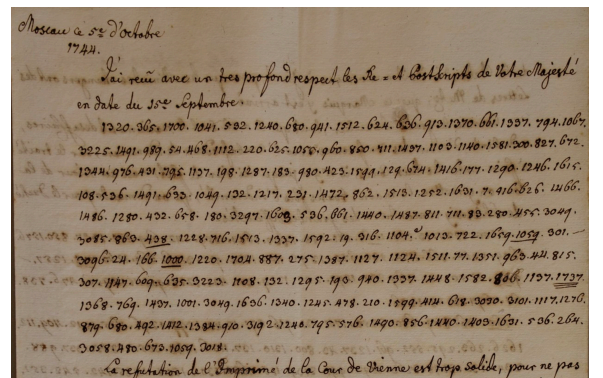 Moscau ce 5e d'Octobre
1744.
J'ai reçû avec un tres profond respect les Re= et Postscripts de Votre Majesté
en date du 15e Septembre.
1320. 365. 1700. 1041. 532. 1240. 680. 941. 1512. 624. 636. 913. 1370. 661. 1337. 794. 1067.
3225. 1491. 989. 54. 468. 1112. 220. 625. 1055. 960. 850. 711. 1437. 1103. 1140. 1581. 300. 827. 672.
1344. 976. 431. 795. 1137. 198. 1287. 183. 980. 423. 1599. 129. 674. 1416. 177. 1290. 1246. 1615.
108. 536. 1491. 633. 1049. 132. 1217. 231. 1472. 862. 1513. 1252. 1631. 7. 916. 626. 1466.
1486. 1280. 432. 658. 180. 3297. 1608. 536. 661. 1440. 1487. 811. 711. 83. 280. 455. 3049.
3085. 863. 438. 1228. 716. 1513. 1337. 1592. 19. 316. 1104. 1013. 722. 1659. 1059. 301.
3096. 24. 166. 1000. 1220. 1704. 887. 275. 1387. 1127. 1124. 1511. 77. 1351. 963. 44. 815.
307. 1147. 609. 635. 3223. 1108. 132. 1295. 193. 940. 1337. 1448. 1582. 866. 1137. 1737.
1368. 769. 1437. 1001. 3049. 1636. 1340. 1245. 478. 210. 1599. 414. 618. 3070. 3101. 1117. 1276.
879. 680. 492. 1412. 1384. 910. 3192. 1240. 795. 576. 1490. 856. 1440. 1403. 1631. 536. 264.
3058. 480. 673. 1059. 3018.
La refutation de l'Imprimé de la Cour de Vienne est trop solide, pour ne pas